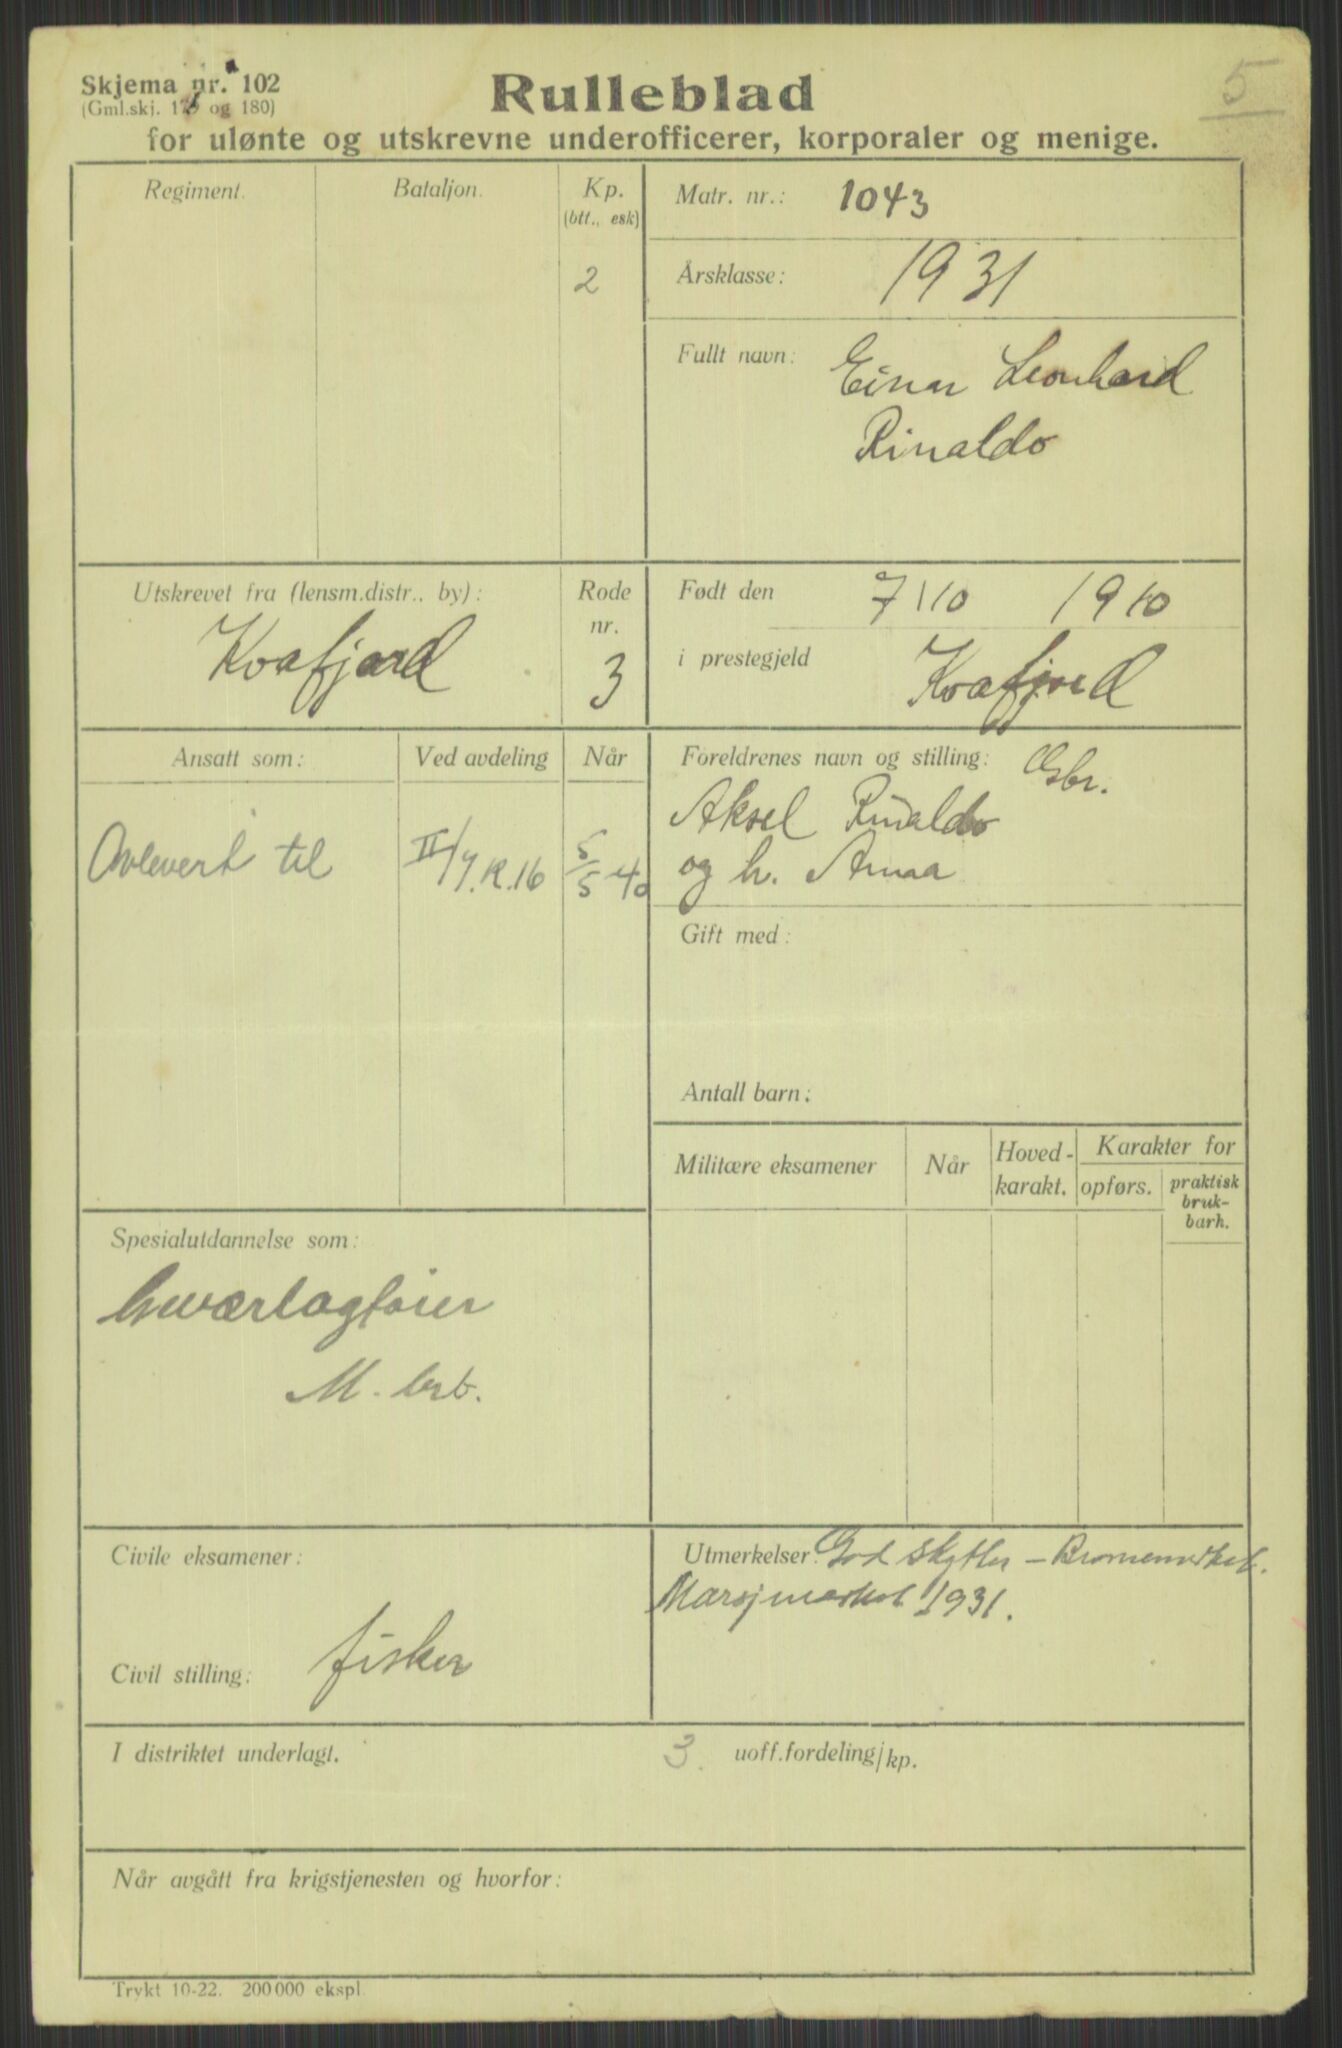 5
Skjema nr. 102
(Gml.skj. 175 og 180)
Rulleblad
for ulønte og utskrevne underofficerer, korporaler og menige.
Regiment.
Bataljon.
Kp.
(btt., esk)
2
Matr. nr.: 1043
Årsklasse: 1931
Fullt navn: Einar Leonhard
Rinaldo
Utskrevet fra (lensm.distr., by):
Kvæfjord
Rode
nr.
3
Født den 7/10 1910
i prestegjeld Kvæfjord
Ansatt som:
Ved avdeling
Når
Avlevert til
II/I.R.16
5/5 40
Foreldrenes navn og stilling: Gsbr.
Aksel Rinaldo
og h. Anna
Gift med:
Antall barn:
Militære eksamener
Når
Hoved-
karakt.
Karakter for
opførs.
praktisk
bruk-
barh.
Spesialutdannelse som:
Geværlagfører
M.
Civile eksamener:
Civil stilling: fisker
Utmerkelser: God skytter – Bronsemerket.
Marsjmerket 1931.
I distriktet underlagt.
3. uoff.fordeling/kp.
Når avgått fra krigstjenesten og hvorfor:
Trykt 10-22. 200 000 ekspl.